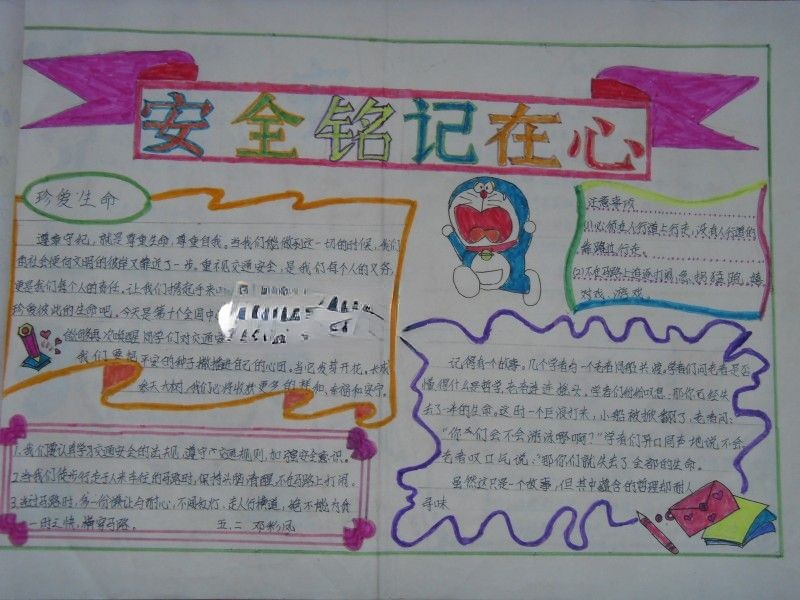 安全铭记在心
珍爱生命
遵章守纪，就是尊重生命，尊重自我。当我们能做到这一切的时候，我们
的社会便向文明的彼岸又靠近了一步。重视交通安全，是我们每个人的义务，
更是我们每个人的责任。让我们携起手来
珍爱彼此的生命吧。今天是第十个全国中
能够再次唤醒同学们对交通安
我们要把平安的种子撒播进自己的心田。当它发芽开花、长成
参天大树，我们必将收获更多的祥和、幸福和安宁。
注意事项
(1)必须在人行道上行走，没有人行道的
靠路边行走。
(2)不在马路上追逐打闹、急 拐猛跑、接
对戏、游戏。
记得有一个故事。几个学者与一个老者同船共渡。学者们问老者是否
懂得什么是哲学，老者连连摇头。学者们纷纷叹息：那你已经失
去了一半的生命。这时一个巨浪打来，小船被掀翻了，老者问：
“你们会不会游泳啊啊？”学者们异口同声地说不会。
老者叹口气说：“那你们就失去了全部的生命。
虽然这只是一个故事，但其中蕴含的哲理却耐人
寻味
1.我们要认真学习交通安全的法规，遵守交通规则，加强安全意识。
2.当我们徒步行走于人来车往的马路时，保持头脑清醒，不在马路上打闹。
3.当过马路时，多一份谦让与耐心，不闯红灯，走人行横道，绝不能为贪
一时之快，横穿马路。 五.二 邓彩凤